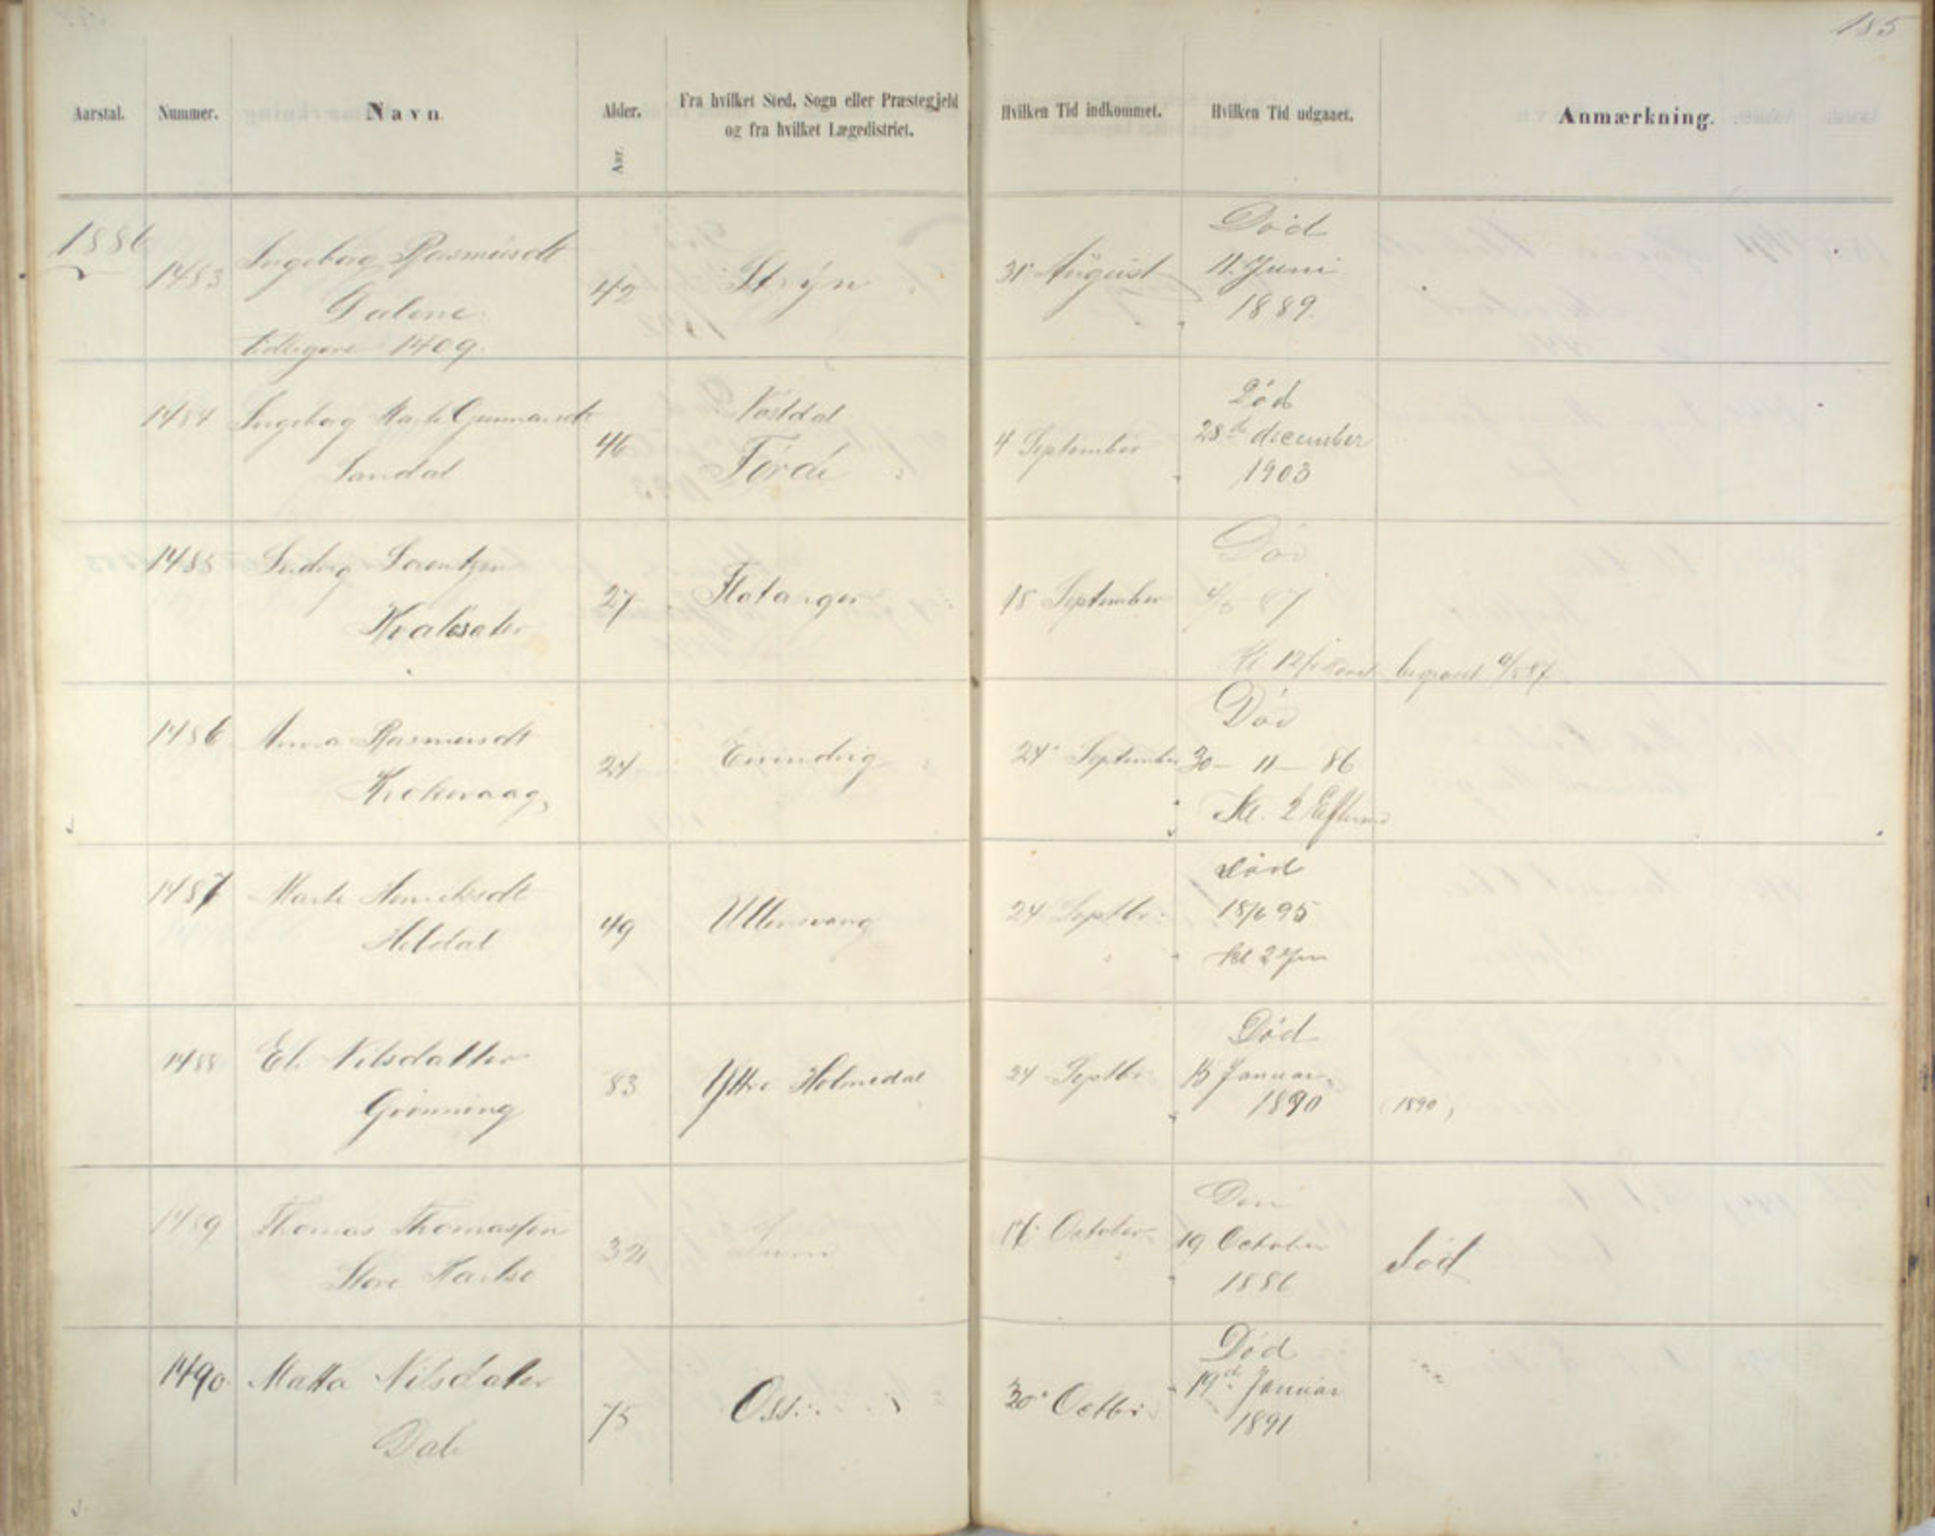 185
Aarstal. Nummer. Navn. Alder. Fra hvilket Sted, Sogn eller Præstegjeld Hvilken Tid indkommet. Hvilken Tid udgaaet. Anmærkning.
og fra hvilket Lægedistrict.
Aar.
1886
1483 Ingeborg Rasmusdt 42 Stryn 31 August Død
11. Juni
Galene 1889.
tidligere 1409.
1484 Ingeborg Marte Gunnarsdt 46 Nøstdal 4 September Død
28de december
Sandal Førde 1903
1485 Ludvig Lorentzen 27 Flatanger 18 September Død
87
begravet
1486 Anna Rasmusdt 24 Evindvig 24 September Død
30 - 11 - 86
Krokevaag Kl. 2 Efterm
1487 Marte Henriksdt 49 Ullensvang 24 Septbr. død
18/6 95
Hildal kl 2
1488 Eli Nilsdatter 83 Yttre Holmedal 24 Septbr Død
15 Januar
Grønning 1890 (1890)
1489 Thomas Thomassen 32 October
19 October Død
Store 1886
1490 Matta Nilsdatter 75 Os 30 Octbr. Død
19de Januar
1891